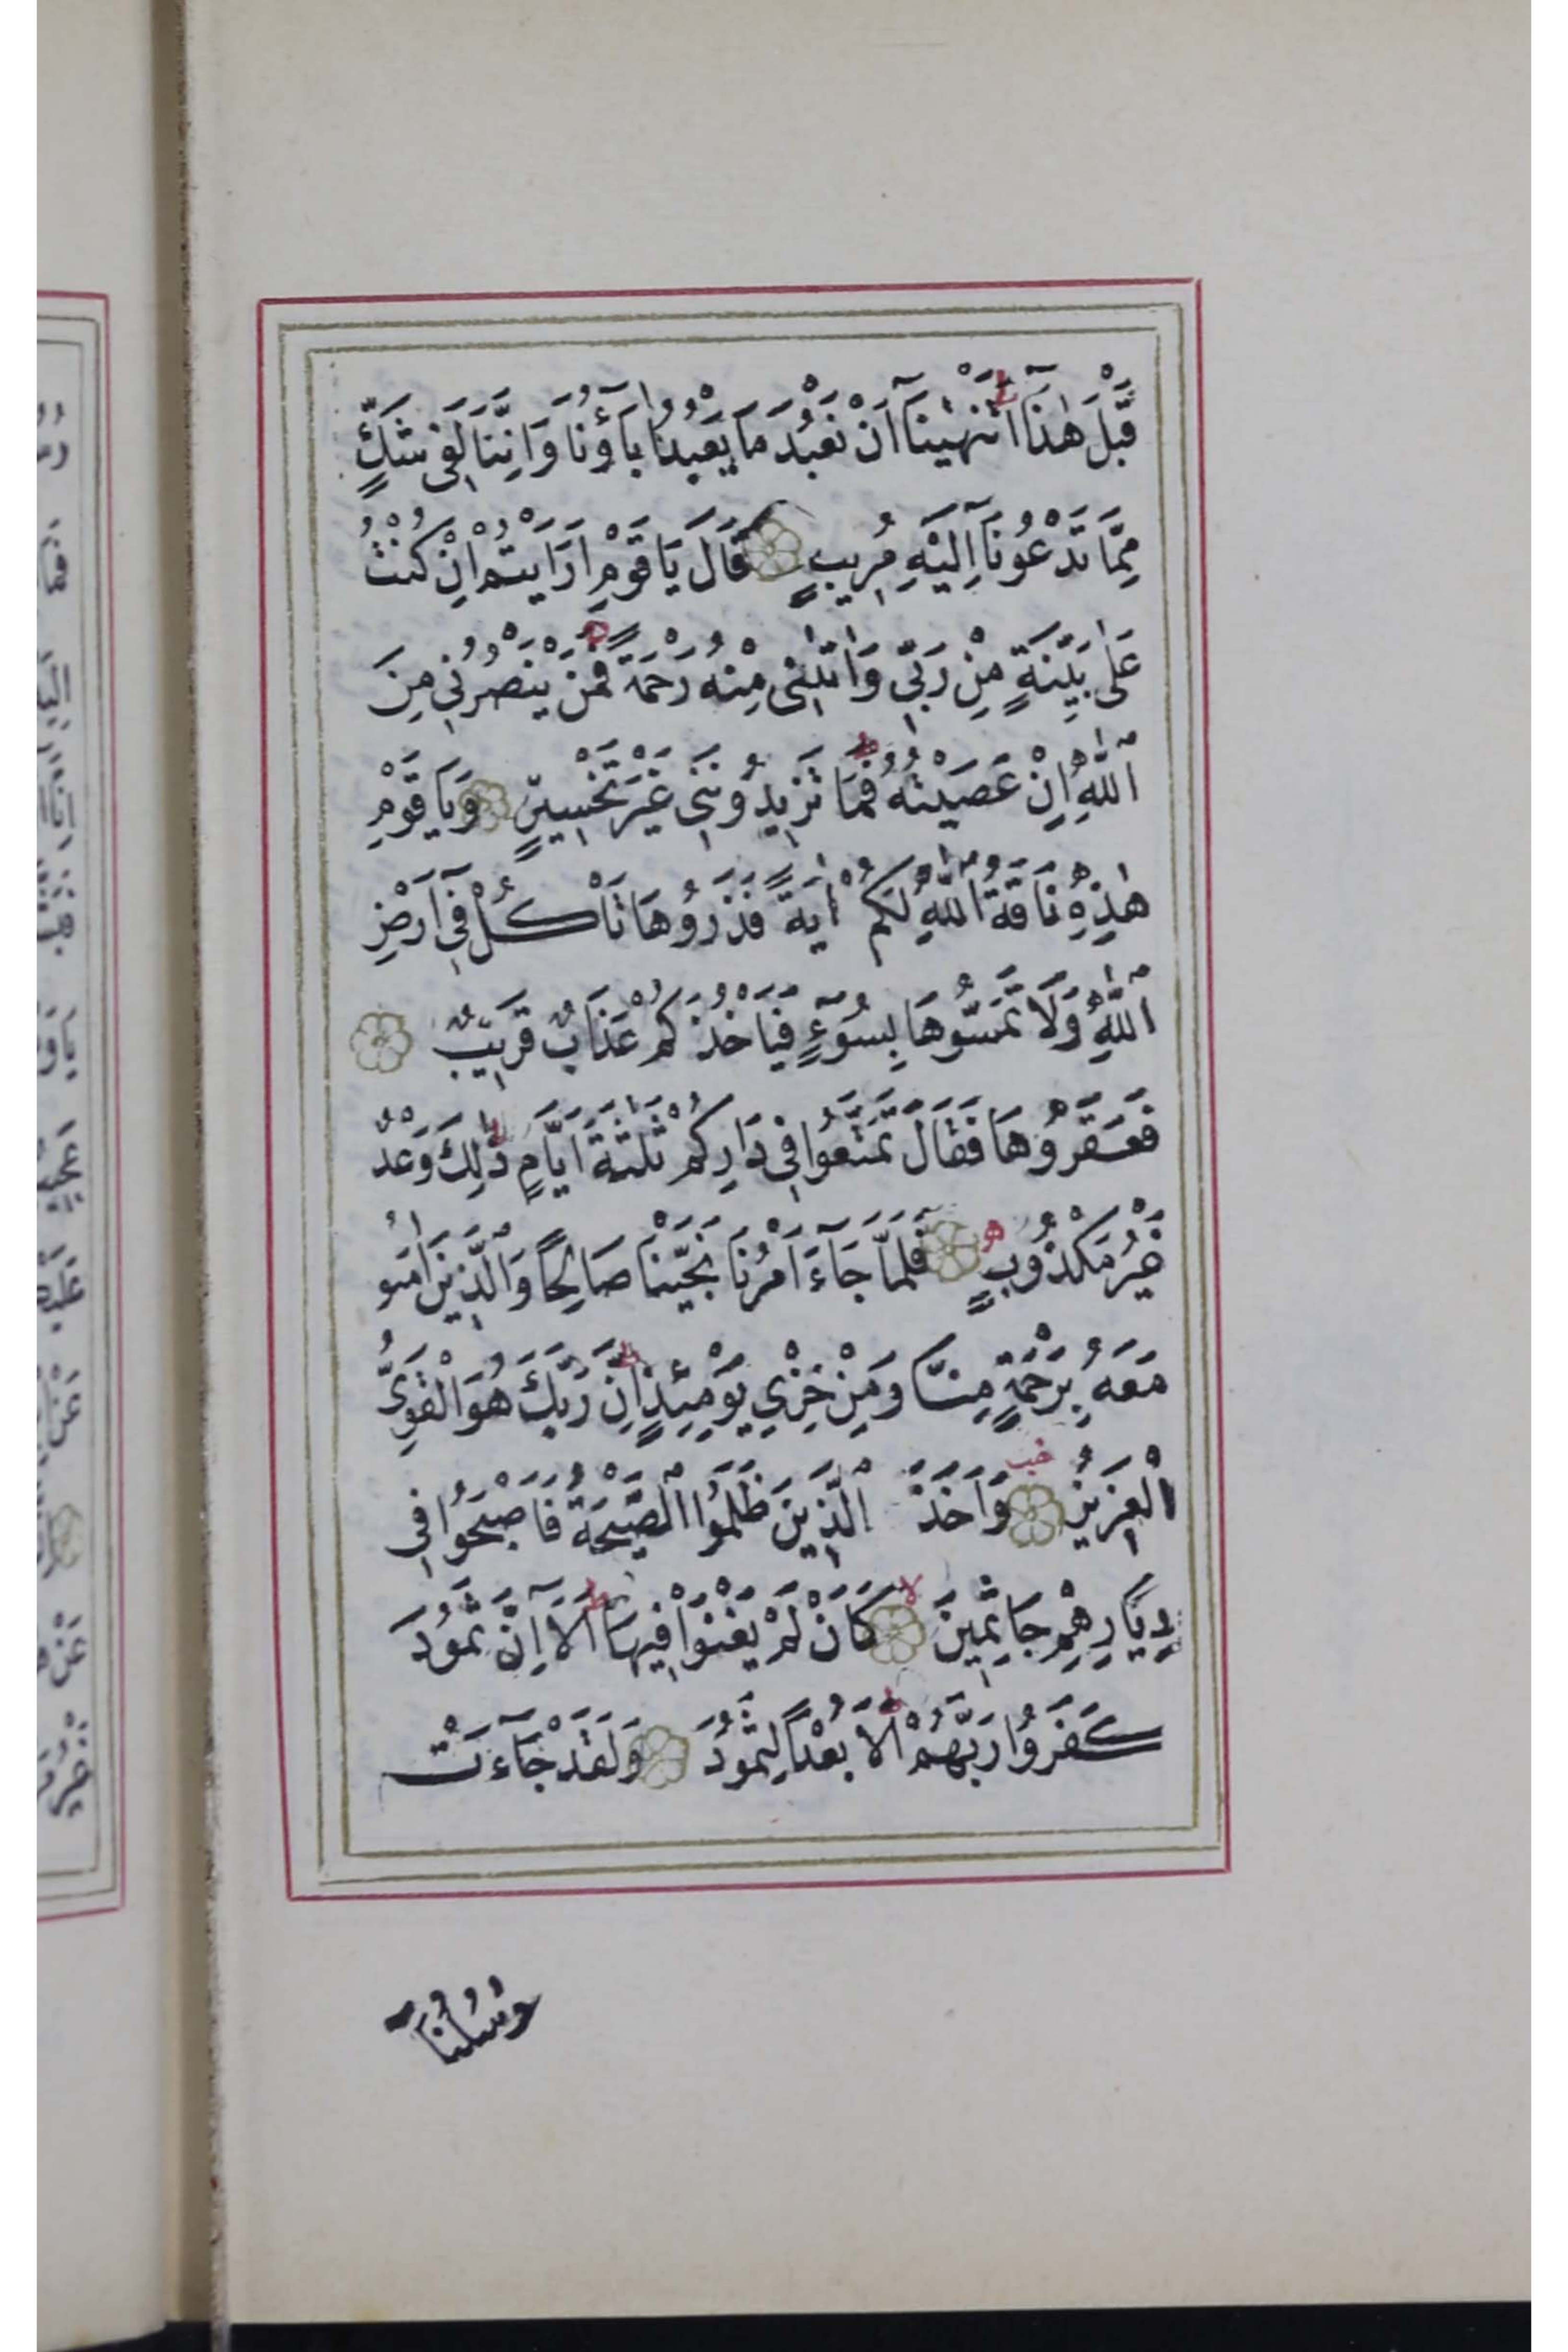 قَبْلَ هٰذَٓا اَتَنْهٰينَٓا اَنْ نَعْبُدَ مَا يَعْبُدُ اٰبَٓاؤُ۬نَا وَاِنَّنَا لَفٖى شَكٍّ
مِمَّا تَدْعُونَٓا اِلَيْهِ مُرٖيبٍ قَالَ يَا قَوْمِ اَرَاَيْتُمْ اِنْ كُنْتُ
عَلٰى بَيِّنَةٍ مِنْ رَبّٖى وَاٰتٰينٖى مِنْهُ رَحْمَةً فَمَنْ يَنْصُرُنٖى مِنَ
اللّٰهِ اِنْ عَصَيْتُهُ فَمَا تَزٖيدُونَنٖى غَيْرَ تَخْسٖيرٍ وَيَا قَوْمِ
هٰذِهٖ نَاقَةُ اللّٰهِ لَكُمْ اٰيَةً فَذَرُوهَا تَأْكُلْ فٖٓى اَرْضِ
اللّٰهِ وَلَا تَمَسُّوهَا بِسُٓوءٍ فَيَأْخُذَكُمْ عَذَابٌ قَرٖيبٌ
فَعَقَرُوهَا فَقَالَ تَمَتَّعُوا فٖى دَارِكُمْ ثَلٰثَةَ اَيَّامٍ ذٰلِكَ وَعْدٌ
غَيْرُ مَكْذُوبٍ فَلَمَّا جَٓاءَ اَمْرُنَا نَجَّيْنَا صَالِحًا وَالَّذٖينَ اٰمَنُو
مَعَهُ بِرَحْمَةٍ مِنَّا وَمِنْ خِزْىِ يَوْمِئِذٍ اِنَّ رَبَّكَ هُوَ الْقَوِىُّ
الْعَزٖيزُ وَاَخَذَ الَّذٖينَ ظَلَمُوا الصَّيْحَةُ فَاَصْبَحُوا فٖى
دِيَارِهِمْ جَاثِمٖينَ كَاَنْ لَمْ يَغْنَوْا فٖيهَا اَلَٓا اِنَّ ثَمُودَ
كَفَرُوا رَبَّهُمْ اَلَا بُعْدًا لِثَمُودَ وَلَقَدْ جَٓاءَتْ
رُسُلُنَٓا